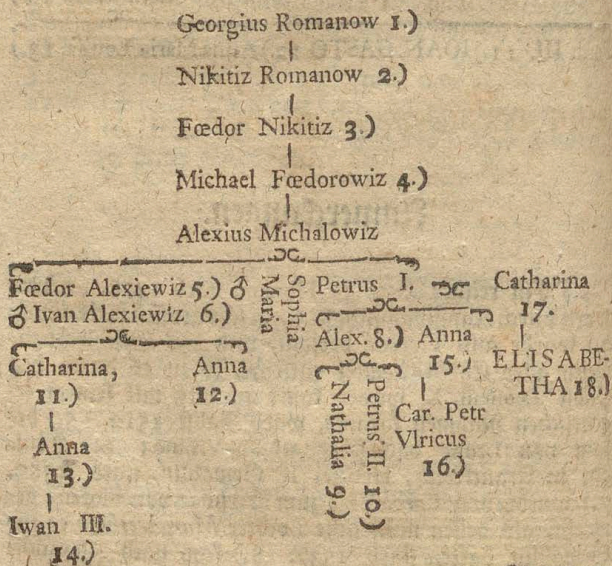 Georgius Romanow 1.)
Nikitiz Romanow 2.)
Fœdor Nikitiz 3.)
Michael Fœdorowiz 4.)
Alexius Michalowiz
Fœdor Alexiewiz 5.) ♂
♂ Ivan Alexiewiz 6.)
Sophia
Maria
Petrus I.
Catharina
17.
Catharina,
11.)
Anna
12.)
Alex. 8.)
Anna
15.)
ELISABE-
THA 18.)
Anna
13.)
Petrus II. 10.)
Nathalia 9.)
Car. Petr
Vlricus
16.)
Iwan III.
14.)